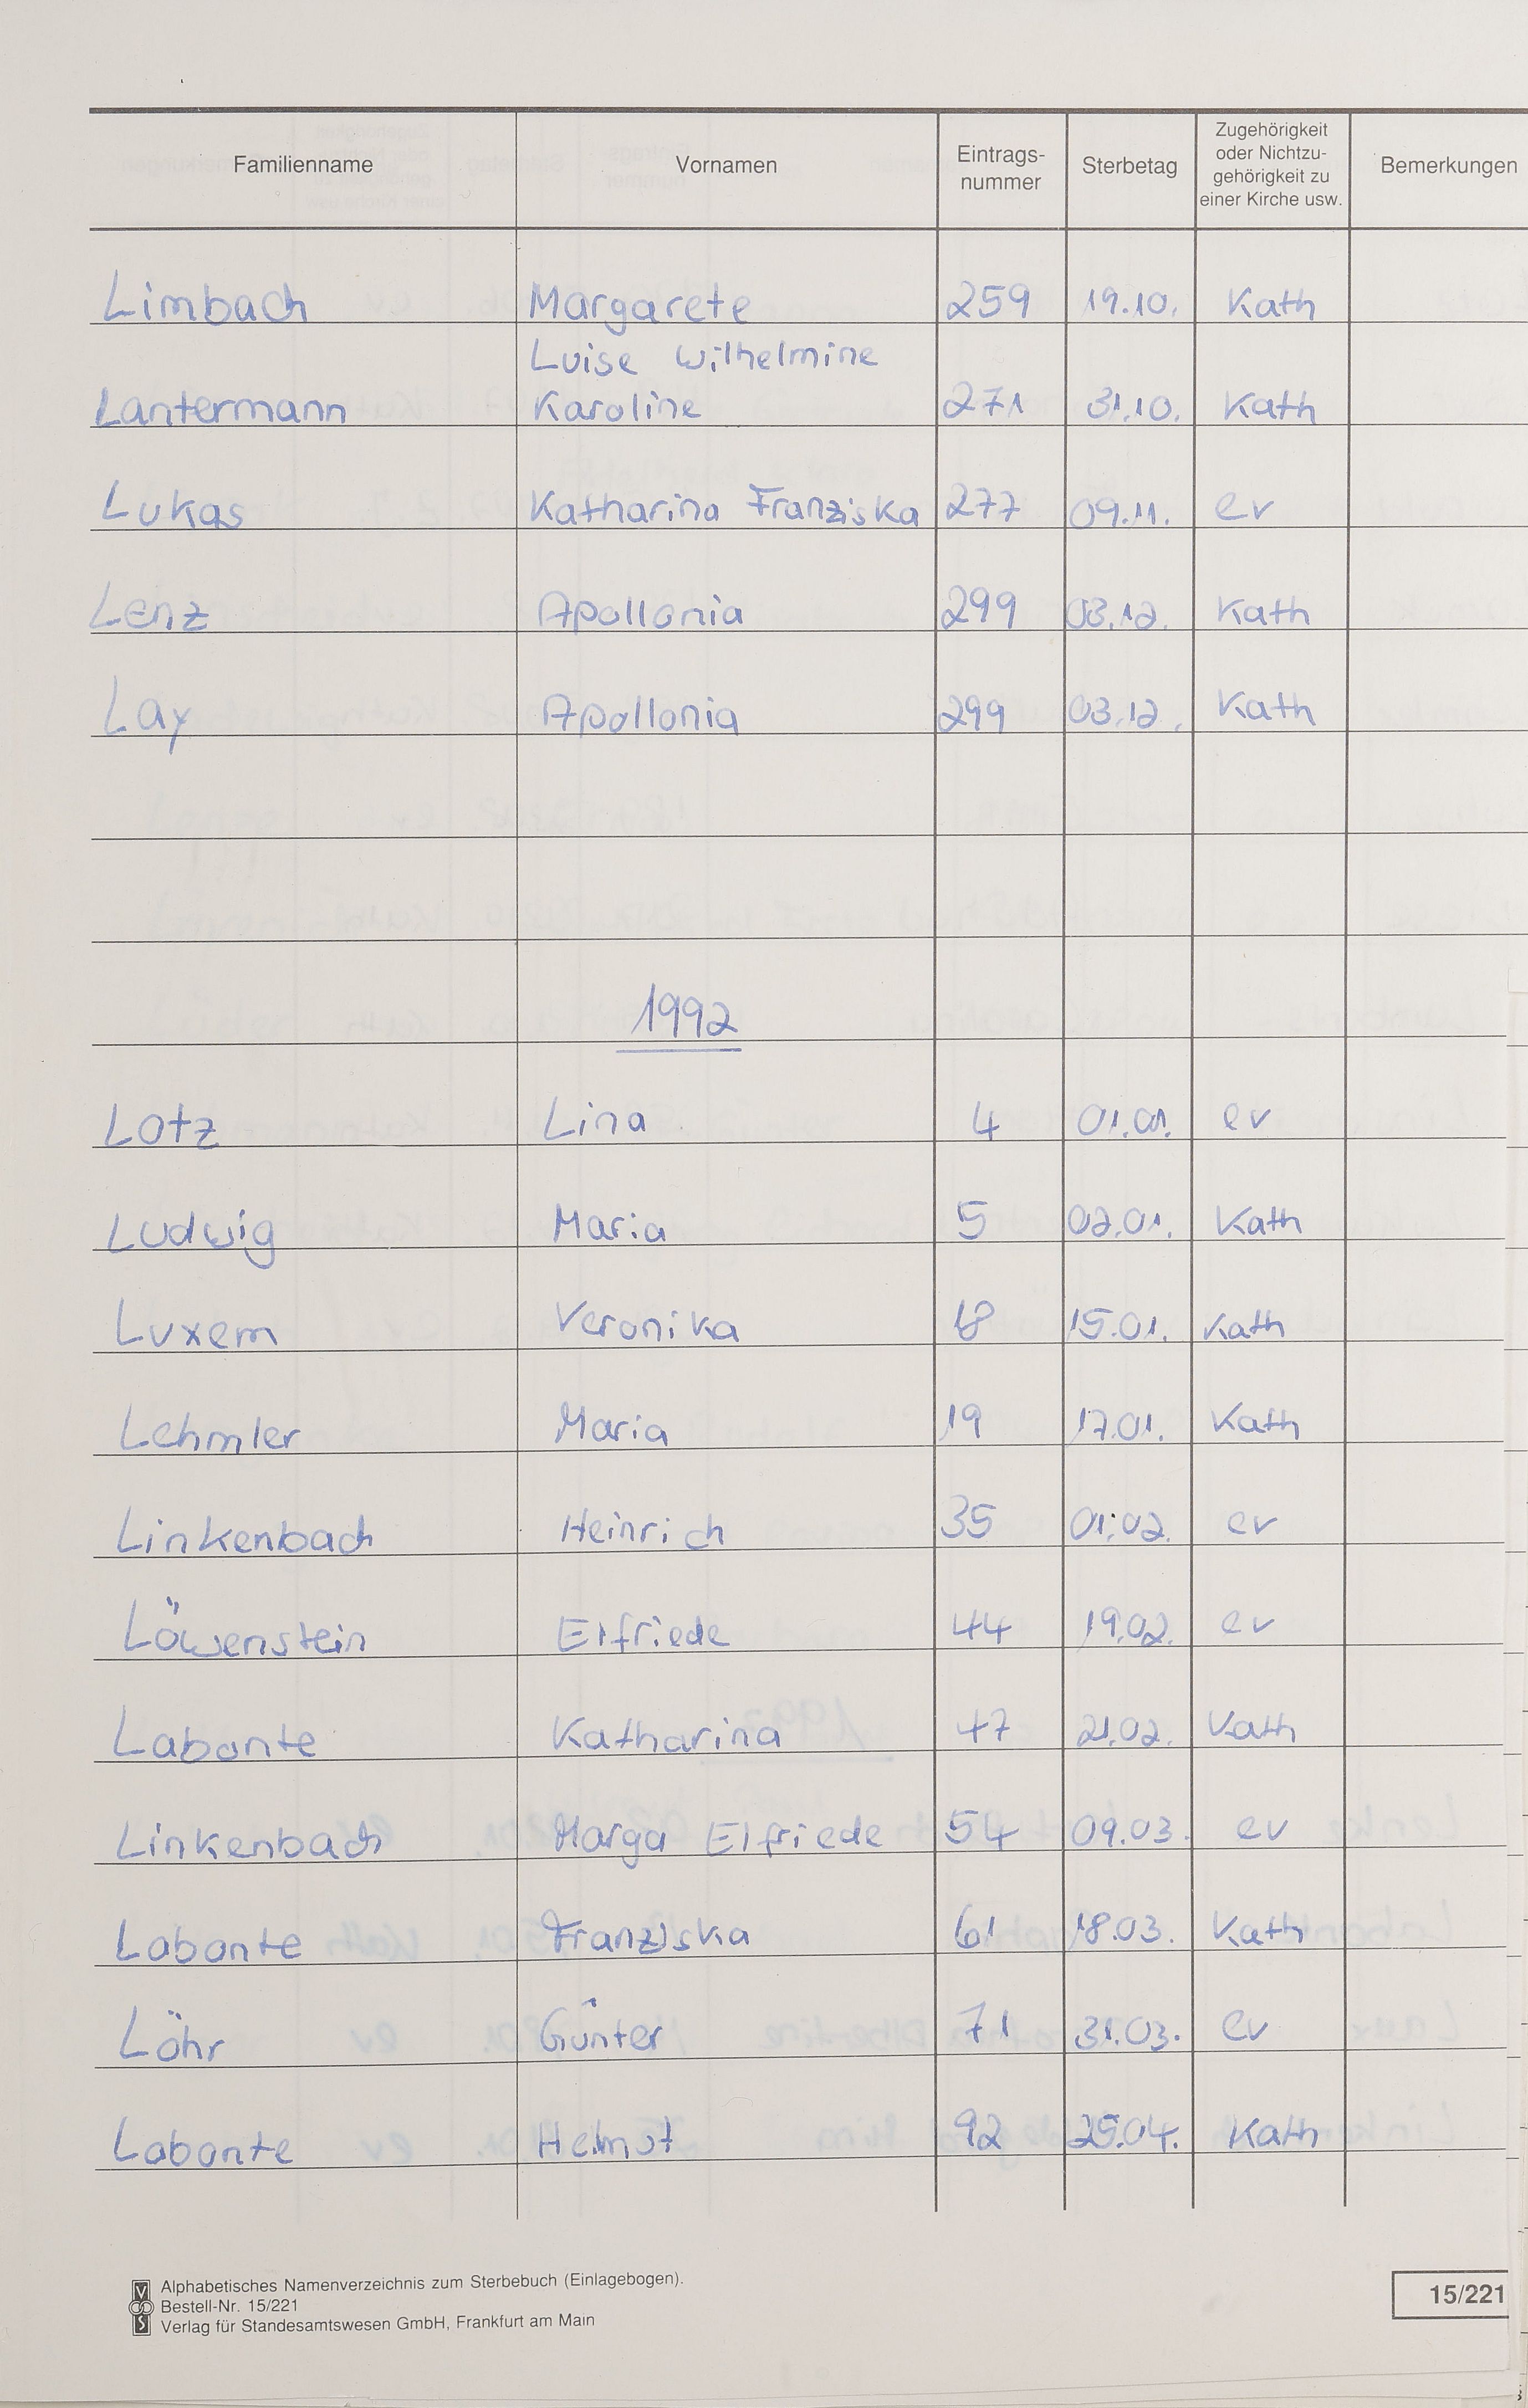 Familienname Vornamen Eintrags-nummer Sterbetag Zugehörigkeit oder Nichtzu-gehörigkeit zu einer Kirche usw. Bemerkungen
Limbach Margarete 259 19.10. Kath
Luise Wilhelmine
Lantermann Karoline 271 31.10. Kath
Lukas Katharina Franziska 277 09.11. ev
Lenz Apollonia 299 03.12. Kath
Lay Apollonia 299 03.12. Kath
1992
Lotz Lina 4 01.01. ev
Ludwig Maria 5 02.01. Kath
Luxem Veronika 18 15.01. Kath
Lehmler Maria 19 17.01. Kath
Linkenbach Heinrich 35 01.02. ev
Löwenstein Elfriede 44 19.02. ev
Labonte Katharina 47 21.02. Kath
Linkenbach Marga Elfriede 54 09.03. ev
Labonte Franziska 61 18.03. Kath
Löhr Günter 71 31.03. ev
Labonte Helmut 92 25.04. Kath
Alphabetisches Namenverzeichnis zum Sterbebuch (Einlagebogen).
Bestell-Nr. 15/221
Verlag für Standesamtswesen GmbH, Frankfurt am Main
15/221